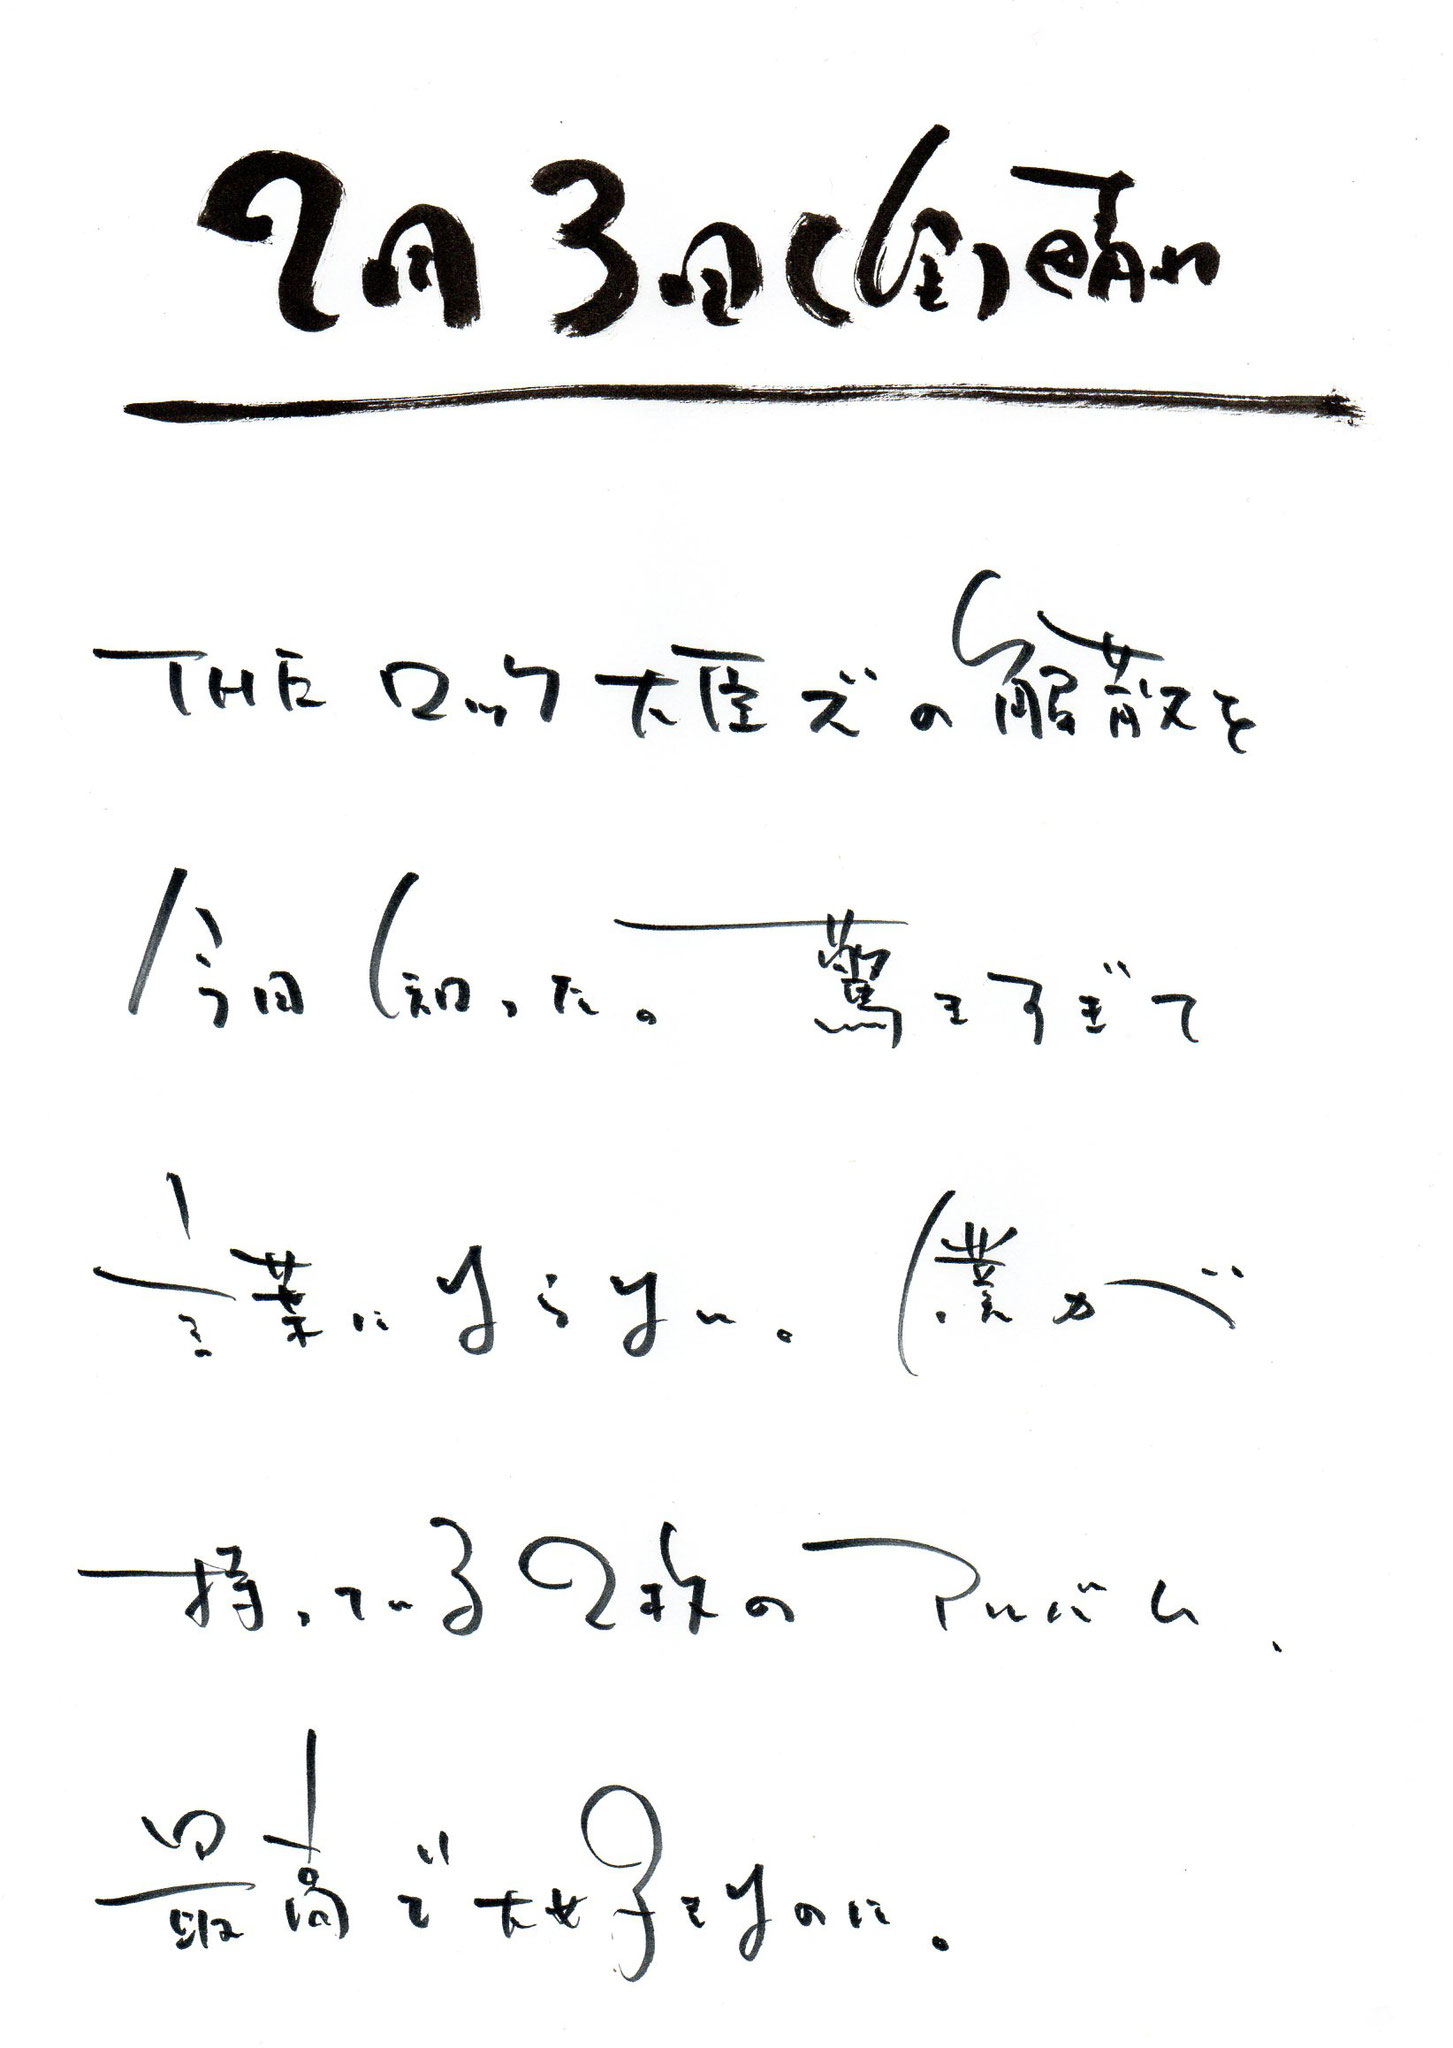 2月3日(金)晴れ
THE ロック大臣ズの解散を
今日知った。驚きすぎて
言葉にならない。僕が
持っている2枚のアルバム、
最高で大好きなのに。